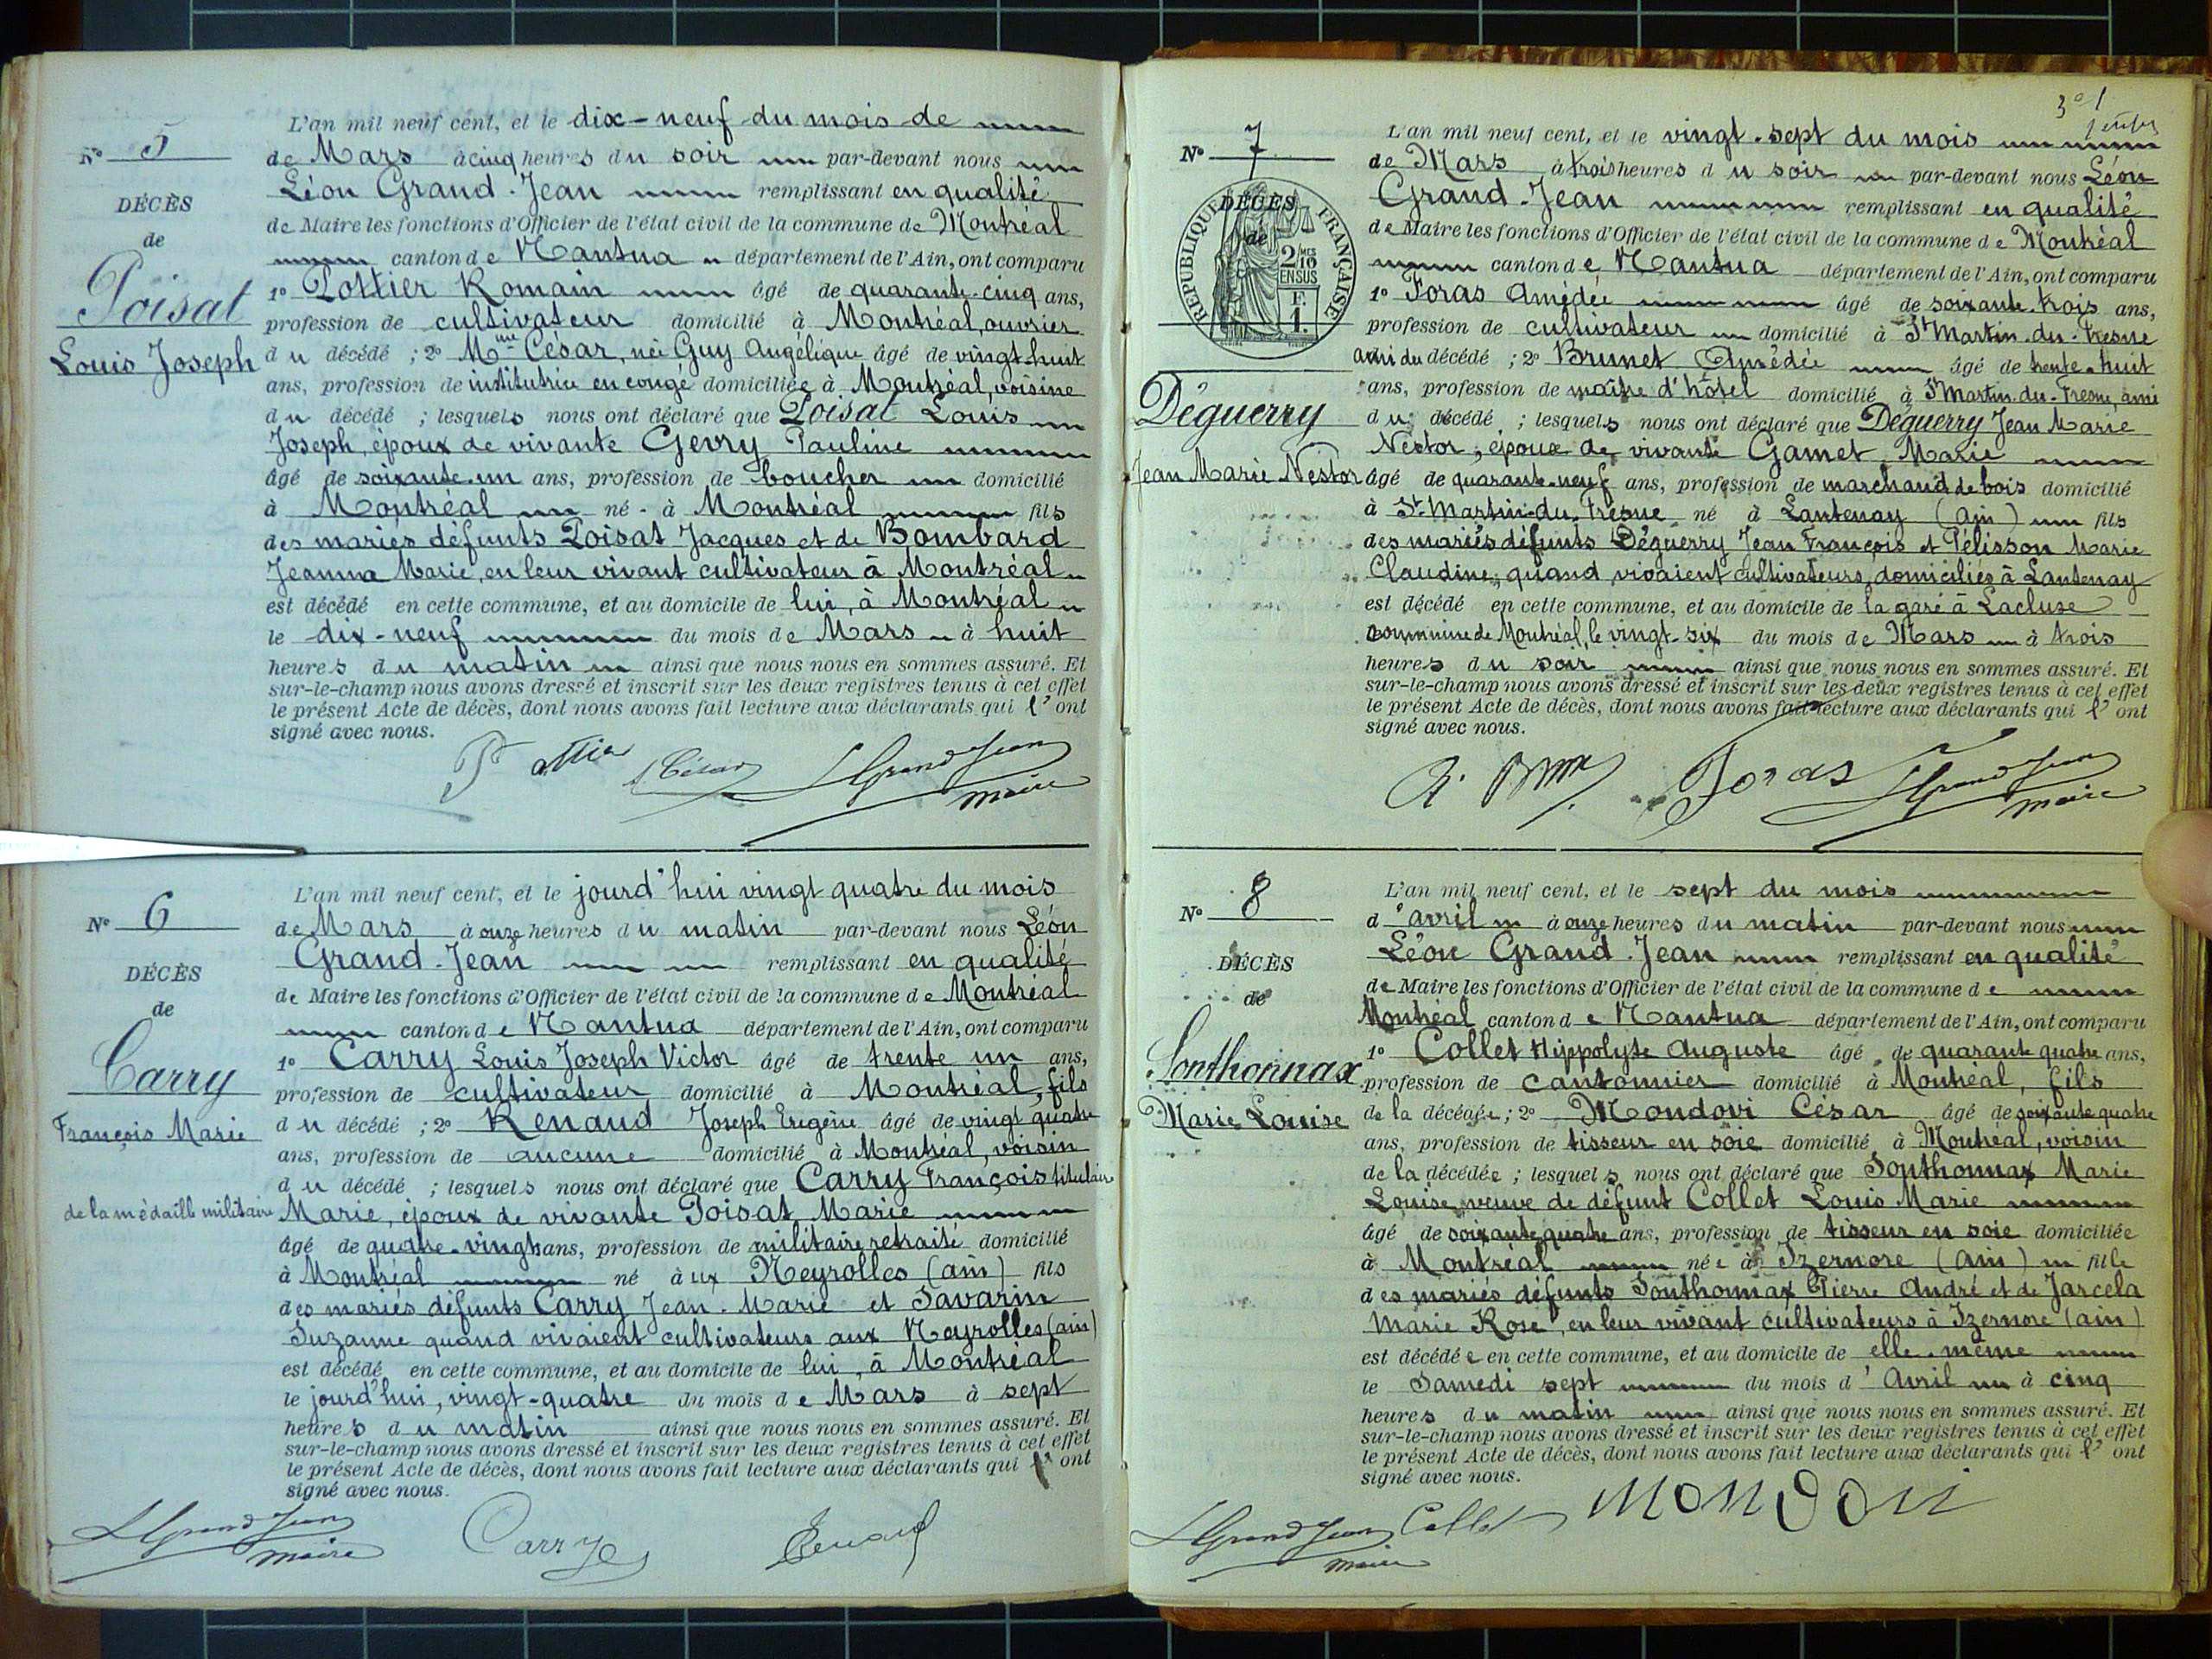 L'an mil neuf cent, et le dix-neuf du mois de
N° 5
de Mars à cinq heures du soir par-devant nous
Léon Grand-Jean remplissant en qualité
DÉCÈS
de Maire les fonctions d'Officier de l'état civil de la commune de Montréal
de
canton de Nantua département de l'Ain, ont comparu
Poisat
1° Pottier Romain âgé de quarante-cinq ans,
profession de cultivateur domicilié à Montréal, ouvrier
Louis Joseph
du décédé ; 2° Mme César, née Guy Angélique âgé de vingt huit
ans, profession de institutrice en congé domiciliée à Montréal, voisine
du décédé ; lesquels nous ont déclaré que Poisat Louis
Joseph, époux de vivante Gerry Pauline
âgé de soixante-un ans, profession de boucher domicilié
à Montréal né à Montréal fils
des mariés défunts Poisat Jacques et de Bombard
Jeanne Marie, en leur vivant cultivateur à Montréal
est décédé en cette commune, et au domicile de lui, à Montréal
le dix-neuf du mois de Mars à huit
heures du matin ainsi que nous nous en sommes assuré. Et
sur-le-champ nous avons dressé et inscrit sur les deux registres tenus à cet effet
le présent Acte de décès, dont nous avons fait lecture aux déclarants qui l'ont
signé avec nous.
César LGrandJean
maire
L'an mil neuf cent, et le jourd'hui vingt quatre du mois
N° 6
de Mars à onze heures du matin par-devant nous Léon
Grand-Jean remplissant en qualité
DÉCÈS
de Maire les fonctions d'Officier de l'état civil de la commune de Montréal
de
canton de Nantua département de l'Ain, ont comparu
Carry
1° Carry Louis Joseph Victor âgé de trente un ans,
profession de cultivateur domicilié à Montréal, fils
François Marie
du décédé ; 2° Renaud Joseph Eugène âgé de vingt quatre
ans, profession de aucune domicilié à Montréal, voisin
du décédé ; lesquels nous ont déclaré que Carry François titulaire
de la médaille militaire
Marie, époux de vivante Poisat Marie
âgé de quatre-vingts ans, profession de militaire retraité domicilié
à Montréal né aux Neyrolles (ain) fils
des mariés défunts Carry Jean-Marie et Savarin
Suzanne quand vivaient cultivateurs aux Neyrolles (ain)
est décédé en cette commune, et au domicile de lui, à Montréal
le jourd'hui, vingt-quatre du mois de Mars à sept
heures du matin ainsi que nous nous en sommes assuré. Et
sur-le-champ nous avons dressé et inscrit sur les deux registres tenus à cet effet
le présent Acte de décès, dont nous avons fait lecture aux déclarants qui l'ont
signé avec nous.
LGrandJean Carry Renaud
maire
L'an mil neuf cent, et le vingt-sept du mois
N° 7
de Mars à trois heures du soir par-devant nous Léon
Grand-Jean remplissant en qualité
DÉCÈS
RÉPUBLIQUE FRANÇAISE
de
2/10MES
EN SUS
F.
1.
de Maire les fonctions d'Officier de l'état civil de la commune de Montréal
canton de Nantua département de l'Ain, ont comparu
1° Foras Amédée âgé de soixante-trois ans,
profession de cultivateur domicilié à St Martin-du-Fresne
ami du décédé ; 2° Brunet Amédée âgé de trente-huit
ans, profession de maître d'hôtel domicilié à St Martin-du-Fresne, ami
Déguerry
du décédé ; lesquels nous ont déclaré que Déguerry Jean Marie
Nestor, époux de vivante Gamet Marie
Jean Marie Nestor
âgé de quarante-neuf ans, profession de marchand de bois domicilié
à St-Martin-du-Fresne né à Lantenay (ain) fils
des mariés défunts Déguerry Jean François et Pélisson Marie
Claudine, quand vivaient cultivateurs, domiciliés à Lantenay
est décédé en cette commune, et au domicile de la gare à Lacluse
commune de Montréal, le vingt-six du mois de Mars à trois
heures du soir ainsi que nous nous en sommes assuré. Et
sur-le-champ nous avons dressé et inscrit sur les deux registres tenus à cet effet
le présent Acte de décès, dont nous avons fait lecture aux déclarants qui l'ont
signé avec nous.
Foras LGrandJean
maire
L'an mil neuf cent, et le sept du mois
N° 8
d'avril à onze heures du matin par-devant nous
Léon Grand-Jean remplissant en qualité
DÉCÈS
de Maire les fonctions d'Officier de l'état civil de la commune de
de
Montréal canton de Nantua département de l'Ain, ont comparu
Sonthonnax
1° Collet Hippolyte Auguste âgé de quarante quatre ans,
profession de cantonnier domicilié à Montréal, fils
Marie Louise
de la décédée ; 2° Mondovi César âgé de soixante quatre
ans, profession de tisseur en soie domicilié à Montréal, voisin
de la décédée ; lesquels nous ont déclaré que Sonthonnax Marie
Louise, veuve de défunt Collet Louis Marie
âgé de soixante quatre ans, profession de tisseur en soie domiciliée
à Montréal née à Izernore (ain) fille
des mariés défunts Sonthonnax Pierre André et de Jarcela
Marie Rose, en leur vivant cultivateurs à Izernore (ain)
est décédée en cette commune, et au domicile de elle-même
le Samedi sept du mois d'Avril à cinq
heures du matin ainsi que nous nous en sommes assuré. Et
sur-le-champ nous avons dressé et inscrit sur les deux registres tenus à cet effet
le présent Acte de décès, dont nous avons fait lecture aux déclarants qui l'ont
signé avec nous.
LGrandJean Collet MONDOVI
maire